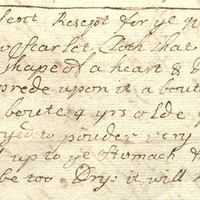 lent Receipt for ye
Scarlet Cloth that
Shape of a heart &
sprede upon it a boute
boute 4 yrs olde
pouder very
up to ye Stomach
be too Dry: it will